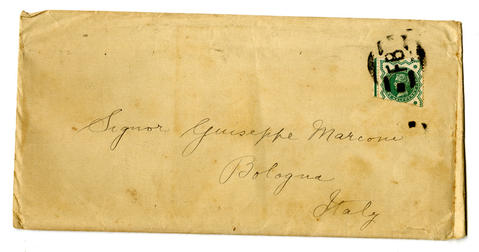 FB
Signor Guiseppe Marconi
Bologna
Italy